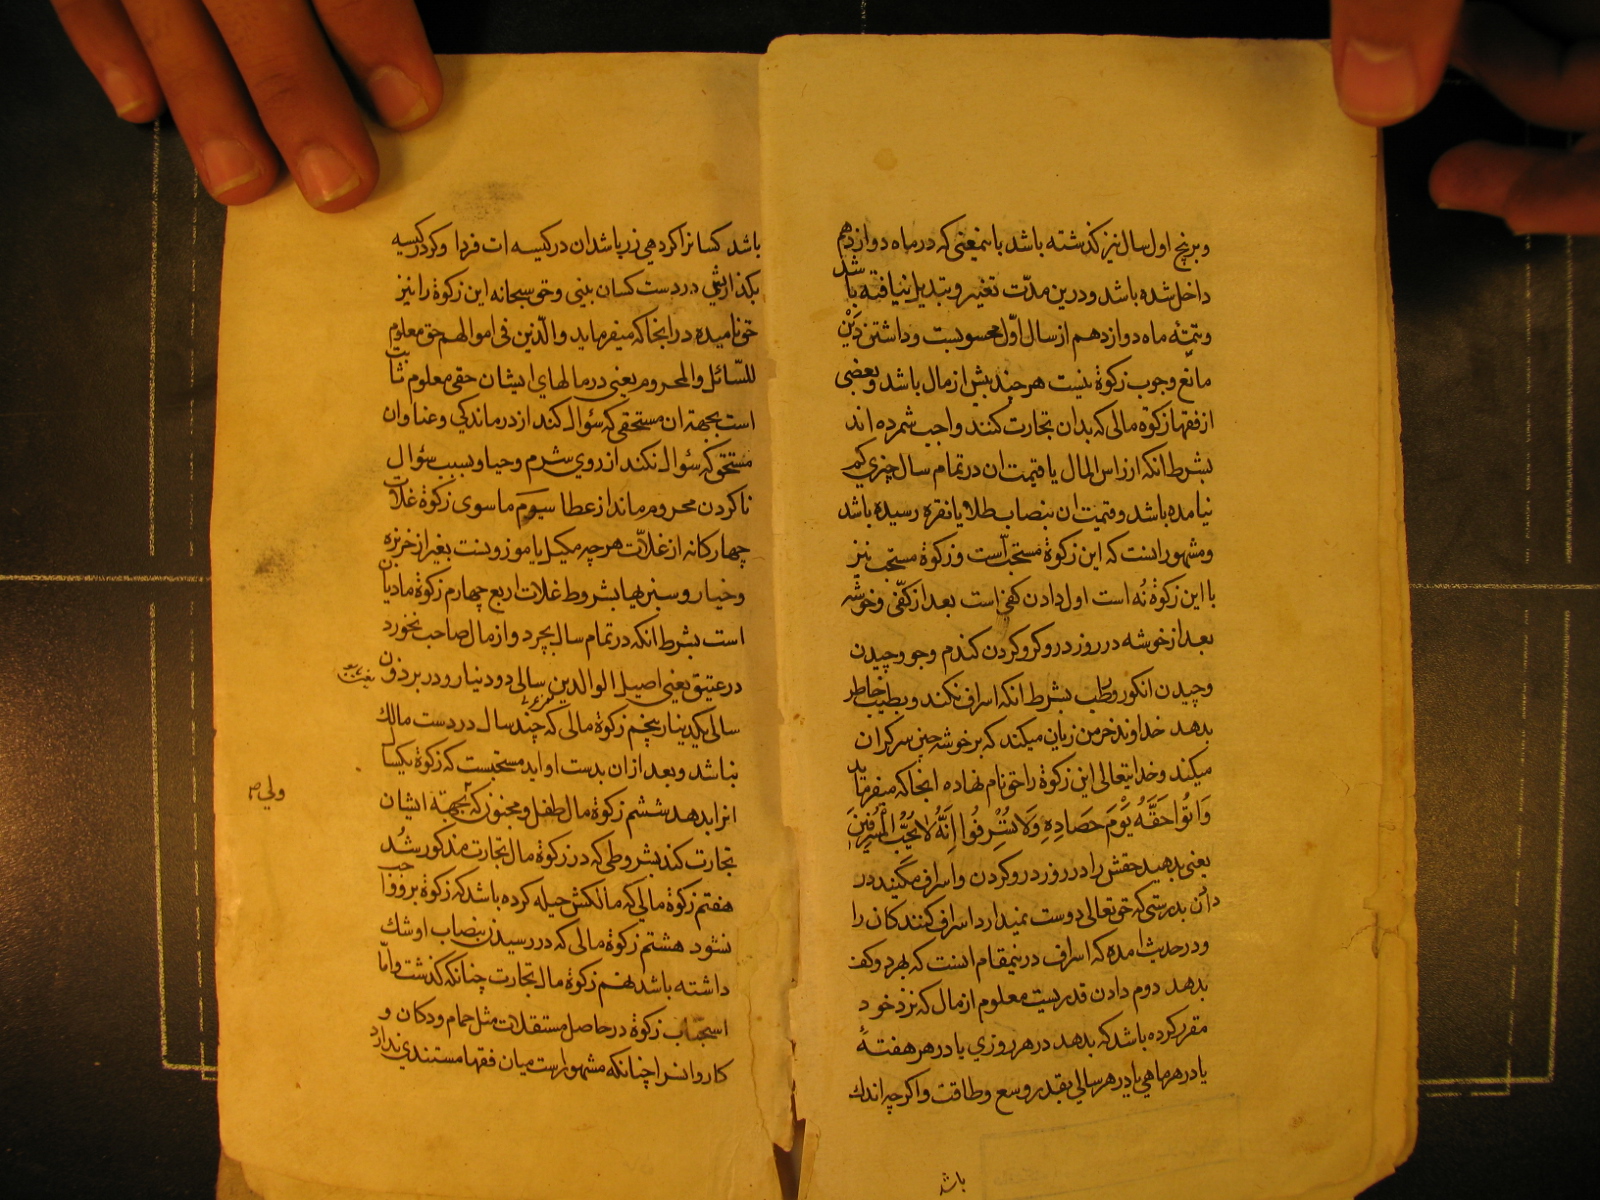 وبرنج اول سال نیز کذشته باشد باینمعنی که در ماه دوازدهم
داخل شده باشد و درین مدّت تغیر و تبدیل نیافته باشد
و تتمّه ماه دوازدهم از سال اوّل محسوبست و داشتن دَیْن
مانع وجوب زکوة نیست هر چند بیش از مال باشد و بعضی
از فقها زکوة مالی که بدان تجارت کنند واجب شمرده اند
بشرط انکه از راس المال یا قیمت ان در تمام سال چیزی کم
نیامده باشد و قیمت ان بنصاب طلا یا نقره رسیده باشد
و مشهور انست که این زکوة مستحبّ است و زکوة مستحب نیز
با این زکوة نُه است اول دادن کفی است بعد از کفّی و خوشه
بعد از خوشه در روز درو کردن کندم و جو و چیدن
و چیدن انکور و رطب بشرط انکه اسراف نکند و بطیب خاطر
بدهد خداوند خرمن زیان میکند که بر خوشه چین سر کران
میکند و خدایتعالی این زکوة را حق نام نهاده انجا که میفرماید
وَاٰتُوا حَقَّهُ یَوْمَ حَصَادِهِ وَلَا تُسْرِفُوا اِنَّهُ لَا یُحِبُّ الْمُسْرِفِینَ
یعنی بدهید حقش را در روز درو کردن و اسراف مکنید در
دادن بدرستی که حق تعالی دوست نمیدارد اسراف کنندکان را
و در حدیث امده که اسراف درینمقام انست که بهر دو کف
بدهد دوم دادن قدریست معلوم از مال که نزد خود
مقرر کرده باشد که بدهد در هر روزی یا در هر هفتهٔ
یا در هر ماهی یا در هر سالی بقدر وسع و طاقت و اکرچه اندك
باشد
باشد کسانرا کردهی زر پاشدان در کیسه ات فردا و کر در کیسه
بکذاریش در دست کسان بینی و حق سبحانه این زکوة را نیز
حق نامیده در انجا که میفرماید والّذین فی اموالهم حق معلوم
للسّائل والمحروم یعنی در مالهای ایشان حقی معلوم ثابت
است بجهة ان مستحقی که سؤال کند از درماندکی و عنا و ان
مستحق که سؤال نکند از روی شرم و حیا و بسبب سؤال
ناکردن محروم ماند از عطا سیوم ما سوی زکوة غلات
چهارکانه از غلاّت هر چه مکیل یا موزونست بغیر از خربزه
و خیار و سبزیها بشروط غلات اربع چهارم زکوة مادیان
است بشرط انکه در تمام سال بچرد و از مال صاحب نخورد
در عتیق یعنی اصیل الوالدین سالی دو دینار و در برذون
سالی یکدینار پنجم زکوة مالی که چند سال در دست مالك
نباشد و بعد از ان بدست او اید مستحبست که زکوة یکسال
انرا بدهد ششم زکوة مال طفل و مجنون که بجهة ایشان
ولی ص
تجارت کند بشروطی که در زکوة مال تجارت مذکور شُد
هفتم زکوة مالی که مالکش حیله کرده باشد که زکوة برو واجب
نشود هشتم زکوة مالی که در رسیدن بنصاب او شك
داشته باشد نهم زکوة مال تجارت چنانکه کذشت و امّا
استحباب زکوة در حاصل مستقلات مثل حمام و دکان و
کاروانسرا چنانکه مشهور است میان فقها مستندی ندارد